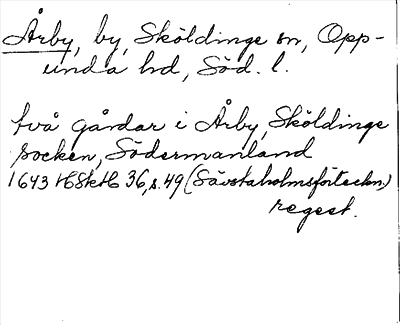 Årby, by, Sköldinge sn, Opp-
unda hd, Söd. l.
två gårdar i Årby, Sköldinge
socken, Södermanland
1643 HSkH 36, s. 49 (Sävstaholmsförteckn.)
regest.